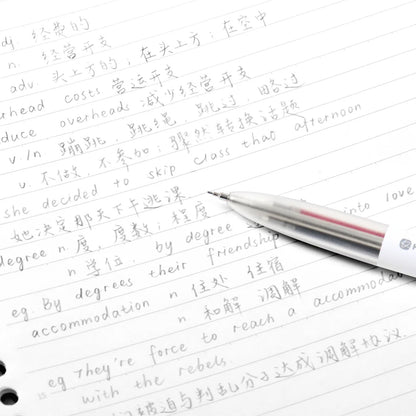 dj 经费的
n. 经营开支
adv. 头上方的, 在头上方; 在空中
rhead costs 营运开支
duce overheads 减少经营开支
v./n 蹦跳, 跳绳, 跳过, 略过
v. 不做, 不参加; 骤然转换话题
she decided to skip class that afternoon
她决定那天下午逃课
degree n. 度, 度数; 程度
n 学位. by degree into love
eg. By degrees their friendship
accommodation n 住处 住宿
n 和解 调解
eg They're force to reach a accommoda
with the rebels.
被迫与判乱分子达成调解协议